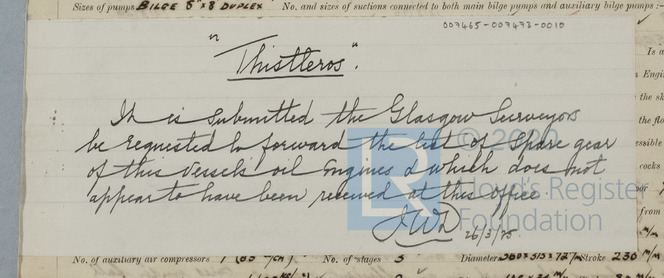 Sizes of pumps BILGE 8" x 8 DUPLEX No. and sizes of suctions connected to both main bilge pumps and auxiliary bilge pumps :-
007465-007473-0010
"Thistleros".
It is submitted the Glasgow Surveyors
be requested to forward the list of spare gear
of this vessel's oil engines & which does not
appear to have been received at this office.
JWD
26/3/25.
© 2020
Lloyd's Register
Foundation
No. of auxiliary air compressors 1 No. of stages 3 Diameter Stroke 230 m/m